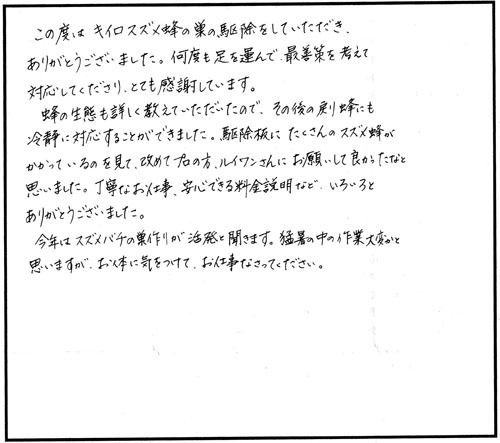 この度は キイロスズメ蜂の巣の駆除をしていただき、
ありがとうございました。何度も足を運んで、最善策を考えて
対応してくださり、とても感謝しています。
蜂の生態も詳しく教えていただいたので、その後の戻り蜂にも
冷静に対応することができました。駆除板に たくさんのスズメ蜂が
かかっているのを見て、改めてプロの方、ルイワンさんに お願いして良かったなと
思いました。丁寧なお仕事、安心できる料金説明など、いろいろと
ありがとうございました。
今年は スズメバチの巣作りが 活発と聞きます。猛暑の中の作業大変かと
思いますが、お体に気をつけて、お仕事なさってください。